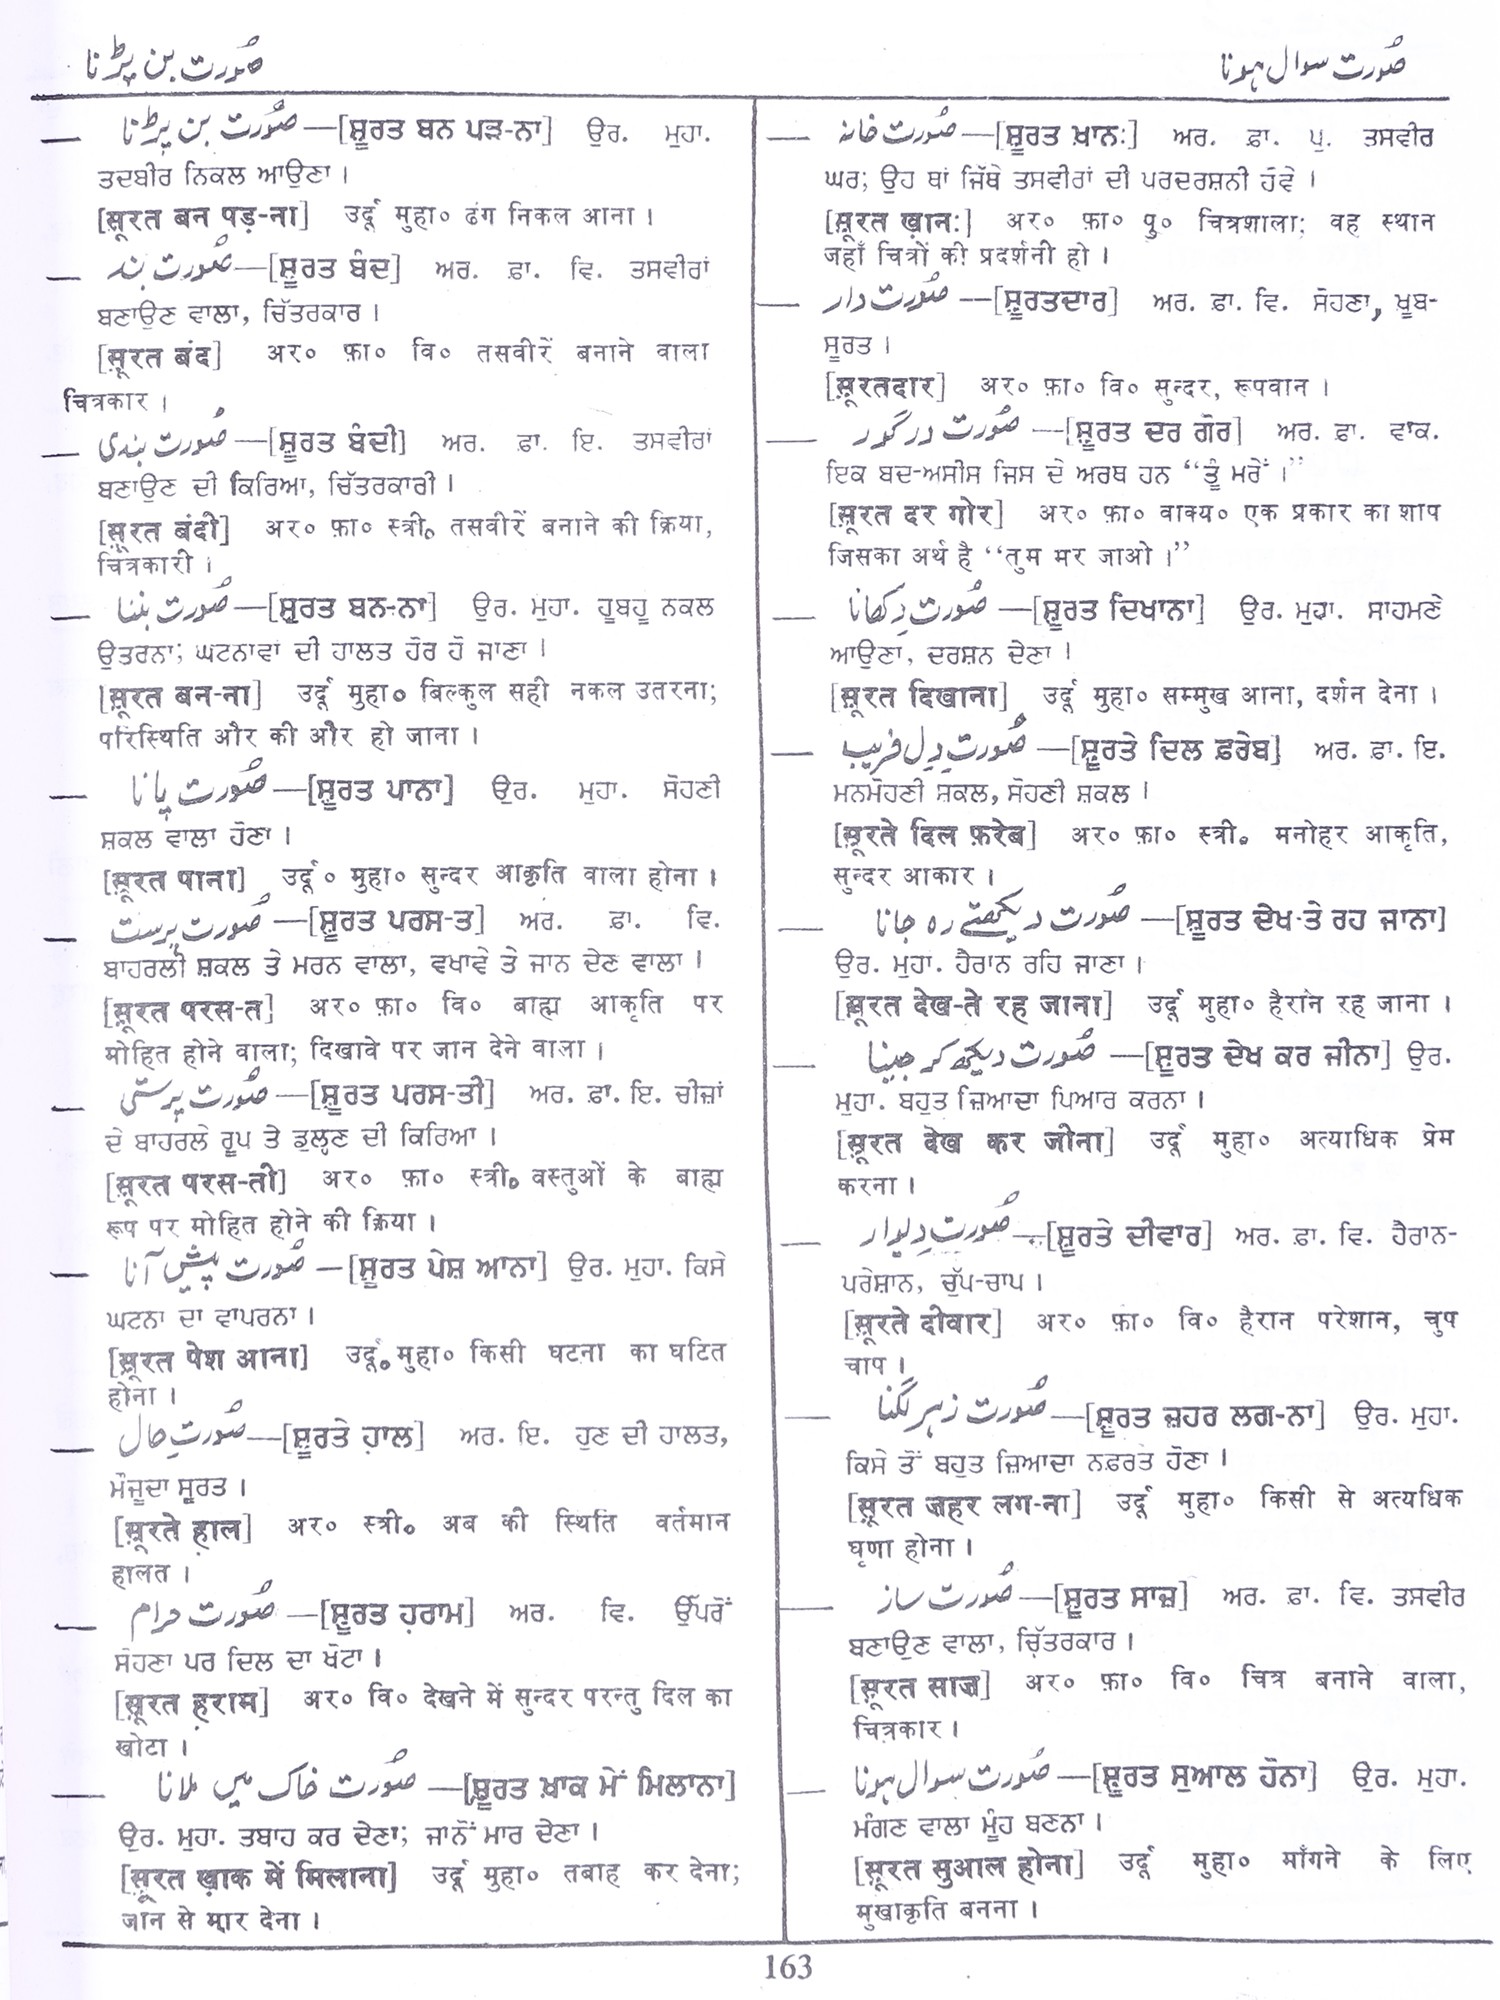 صُورت بن پڑنا
صُورت سوال ہونا
— صُورت بن پڑنا —[ਸੂਰਤ ਬਨ ਪੜ-ਨਾ] ਉਰ. ਮੁਹਾ.
ਤਦਬੀਰ ਨਿਕਲ ਆਉਣਾ ।
[सूरत बन पड़-ना] उर्दू मुहा० ढंग निकल आना ।
— صُورت بند —[ਸੂਰਤ ਬੰਦ] ਅਰ. ਫ਼ਾ. ਵਿ. ਤਸਵੀਰਾਂ
ਬਣਾਉਣ ਵਾਲਾ, ਚਿੱਤਰਕਾਰ ।
[सूरत बंद] अर० फ़ा० वि० तसवीरें बनाने वाला
चित्रकार ।
— صُورت بندی —[ਸੂਰਤ ਬੰਦੀ] ਅਰ. ਫ਼ਾ. ਇ. ਤਸਵੀਰਾਂ
ਬਣਾਉਣ ਦੀ ਕਿਰਿਆ, ਚਿੱਤਰਕਾਰੀ ।
[सूरत बंदी] अर० फ़ा० स्त्री० तसवीरें बनाने की क्रिया,
चित्रकारी ।
— صُورت بننا —[ਸੂਰਤ ਬਨ-ਨਾ] ਉਰ. ਮੁਹਾ. ਹੂਬਹੂ ਨਕਲ
ਉਤਰਨਾ; ਘਟਨਾਵਾਂ ਦੀ ਹਾਲਤ ਹੋਰ ਹੋ ਜਾਣਾ ।
[सूरत बन-ना] उर्दू मुहा० बिल्कुल सही नकल उतरना;
परिस्थिति और की और हो जाना ।
— صُورت پانا —[ਸੂਰਤ ਪਾਨਾ] ਉਰ. ਮੁਹਾ. ਸੋਹਣੀ
ਸ਼ਕਲ ਵਾਲਾ ਹੋਣਾ ।
[सूरत पाना] उर्दू ० मुहा० सुन्दर आकृति वाला होना ।
— صُورت پرست —[ਸੂਰਤ ਪਰਸ-ਤ] ਅਰ. ਫ਼ਾ. ਵਿ.
ਬਾਹਰਲੀ ਸ਼ਕਲ ਤੇ ਮਰਨ ਵਾਲਾ, ਵਖਾਵੇ ਤੇ ਜਾਨ ਦੇਣ ਵਾਲਾ ।
[सूरत परस-त] अर० फ़ा० वि० बाह्य आकृति पर
मोहित होने वाला; दिखावे पर जान देने वाला ।
— صُورت پرستی —[ਸੂਰਤ ਪਰਸ-ਤੀ] ਅਰ. ਫ਼ਾ. ਇ. ਚੀਜ਼ਾਂ
ਦੇ ਬਾਹਰਲੇ ਰੂਪ ਤੇ ਡੁਲ੍ਹਣ ਦੀ ਕਿਰਿਆ ।
[सूरत परस-ती] अर० फ़ा० स्त्री० वस्तुओं के बाह्य
रूप पर मोहित होने की क्रिया ।
— صُورت پیش آنا —[ਸੂਰਤ ਪੇਸ਼ ਆਨਾ] ਉਰ. ਮੁਹਾ. ਕਿਸੇ
ਘਟਨਾ ਦਾ ਵਾਪਰਨਾ ।
[सूरत पेश आना] उर्दू० मुहा० किसी घटना का घटित
होना ।
— صُورتِ حال —[ਸੂਰਤੇ ਹ਼ਾਲ] ਅਰ. ਇ. ਹੁਣ ਦੀ ਹਾਲਤ,
ਮੌਜੂਦਾ ਸੂਰਤ ।
[सूरते ह़ाल] अर० स्त्री० अब की स्थिति वर्तमान
हालत ।
— صُورت حرام —[ਸੂਰਤ ਹ਼ਰਾਮ] ਅਰ. ਵਿ. ਉੱਪਰੋਂ
ਸੋਹਣਾ ਪਰ ਦਿਲ ਦਾ ਖੋਟਾ ।
[सूरत ह़राम] अर० वि० देखने में सुन्दर परन्तु दिल का
खोटा ।
— صُورت خاک میں ملانا —[ਸੂਰਤ ਖ਼ਾਕ ਮੇਂ ਮਿਲਾਨਾ]
ਉਰ. ਮੁਹਾ. ਤਬਾਹ ਕਰ ਦੇਣਾ; ਜਾਨੋਂ ਮਾਰ ਦੇਣਾ ।
[सूरत ख़ाक में मिलाना] उर्दू मुहा० तबाह कर देना;
जान से मार देना ।
— صُورت خانہ —[ਸੂਰਤ ਖ਼ਾਨ:] ਅਰ. ਫ਼ਾ. ਪੁ. ਤਸਵੀਰ
ਘਰ; ਉਹ ਥਾਂ ਜਿੱਥੇ ਤਸਵੀਰਾਂ ਦੀ ਪਰਦਰਸ਼ਨੀ ਹੋਵੇ ।
[सूरत ख़ान:] अर० फ़ा० पु० चित्रशाला; वह स्थान
जहाँ चित्रों की प्रदर्शनी हो ।
— صُورت دار —[ਸੂਰਤਦਾਰ] ਅਰ. ਫ਼ਾ. ਵਿ. ਸੋਹਣਾ, ਖ਼ੂਬ-
ਸੂਰਤ ।
[सूरतदार] अर० फ़ा० वि० सुन्दर, रूपवान ।
— صُورت در گور —[ਸੂਰਤ ਦਰ ਗੋਰ] ਅਰ. ਫ਼ਾ. ਵਾਕ.
ਇਕ ਬਦ-ਅਸੀਸ ਜਿਸ ਦੇ ਅਰਥ ਹਨ “ਤੂੰ ਮਰੇਂ ।”
[सूरत दर गोर] अर० फ़ा० वाक्य० एक प्रकार का शाप
जिसका अर्थ है “तुम मर जाओ ।”
— صُورت دِکھانا —[ਸੂਰਤ ਦਿਖਾਨਾ] ਉਰ. ਮੁਹਾ. ਸਾਹਮਣੇ
ਆਉਣਾ, ਦਰਸ਼ਨ ਦੇਣਾ ।
[सूरत दिखाना] उर्दू मुहा० सम्मुख आना, दर्शन देना ।
— صُورتِ دِل فریب —[ਸੂਰਤੇ ਦਿਲ ਫ਼ਰੇਬ] ਅਰ. ਫ਼ਾ. ਇ.
ਮਨਮੋਹਣੀ ਸ਼ਕਲ, ਸੋਹਣੀ ਸ਼ਕਲ ।
[सूरते दिल फ़रेब] अर० फ़ा० स्त्री० मनोहर आकृति,
सुन्दर आकार ।
— صُورت دیکھتے رہ جانا —[ਸੂਰਤ ਦੇਖ-ਤੇ ਰਹ ਜਾਨਾ]
ਉਰ. ਮੁਹਾ. ਹੈਰਾਨ ਰਹਿ ਜਾਣਾ ।
[सूरत देख-ते रह जाना] उर्दू मुहा० हैरान रह जाना ।
— صُورت دیکھ کر جینا —[ਸੂਰਤ ਦੇਖ ਕਰ ਜੀਨਾ] ਉਰ.
ਮੁਹਾ. ਬਹੁਤ ਜ਼ਿਆਦਾ ਪਿਆਰ ਕਰਨਾ ।
[सूरत देख कर जीना] उर्दू मुहा० अत्याधिक प्रेम
करना ।
— صُورتِ دِیوار —[ਸੂਰਤੇ ਦੀਵਾਰ] ਅਰ. ਫ਼ਾ. ਵਿ. ਹੈਰਾਨ-
ਪਰੇਸ਼ਾਨ, ਚੁੱਪ-ਚਾਪ ।
[सूरते दीवार] अर० फ़ा० वि० हैरान परेशान, चुप
चाप ।
— صُورت زہر لگنا —[ਸੂਰਤ ਜ਼ਹਰ ਲਗ-ਨਾ] ਉਰ. ਮੁਹਾ.
ਕਿਸੇ ਤੋਂ ਬਹੁਤ ਜ਼ਿਆਦਾ ਨਫ਼ਰਤ ਹੋਣਾ ।
[सूरत ज़हर लग-ना] उर्दू मुहा० किसी से अत्यधिक
घृणा होना ।
— صُورت ساز —[ਸੂਰਤ ਸਾਜ਼] ਅਰ. ਫ਼ਾ. ਵਿ. ਤਸਵੀਰ
ਬਣਾਉਣ ਵਾਲਾ, ਚਿੱਤਰਕਾਰ ।
[सूरत साज़] अर० फ़ा० वि० चित्र बनाने वाला,
चित्रकार ।
— صُورت سوال ہونا —[ਸੂਰਤ ਸੁਆਲ ਹੋਨਾ] ਉਰ. ਮੁਹਾ.
ਮੰਗਣ ਵਾਲਾ ਮੂੰਹ ਬਣਨਾ ।
[सूरत सुआल होना] उर्दू मुहा० माँगने के लिए
मुखाकृति बनना ।
163